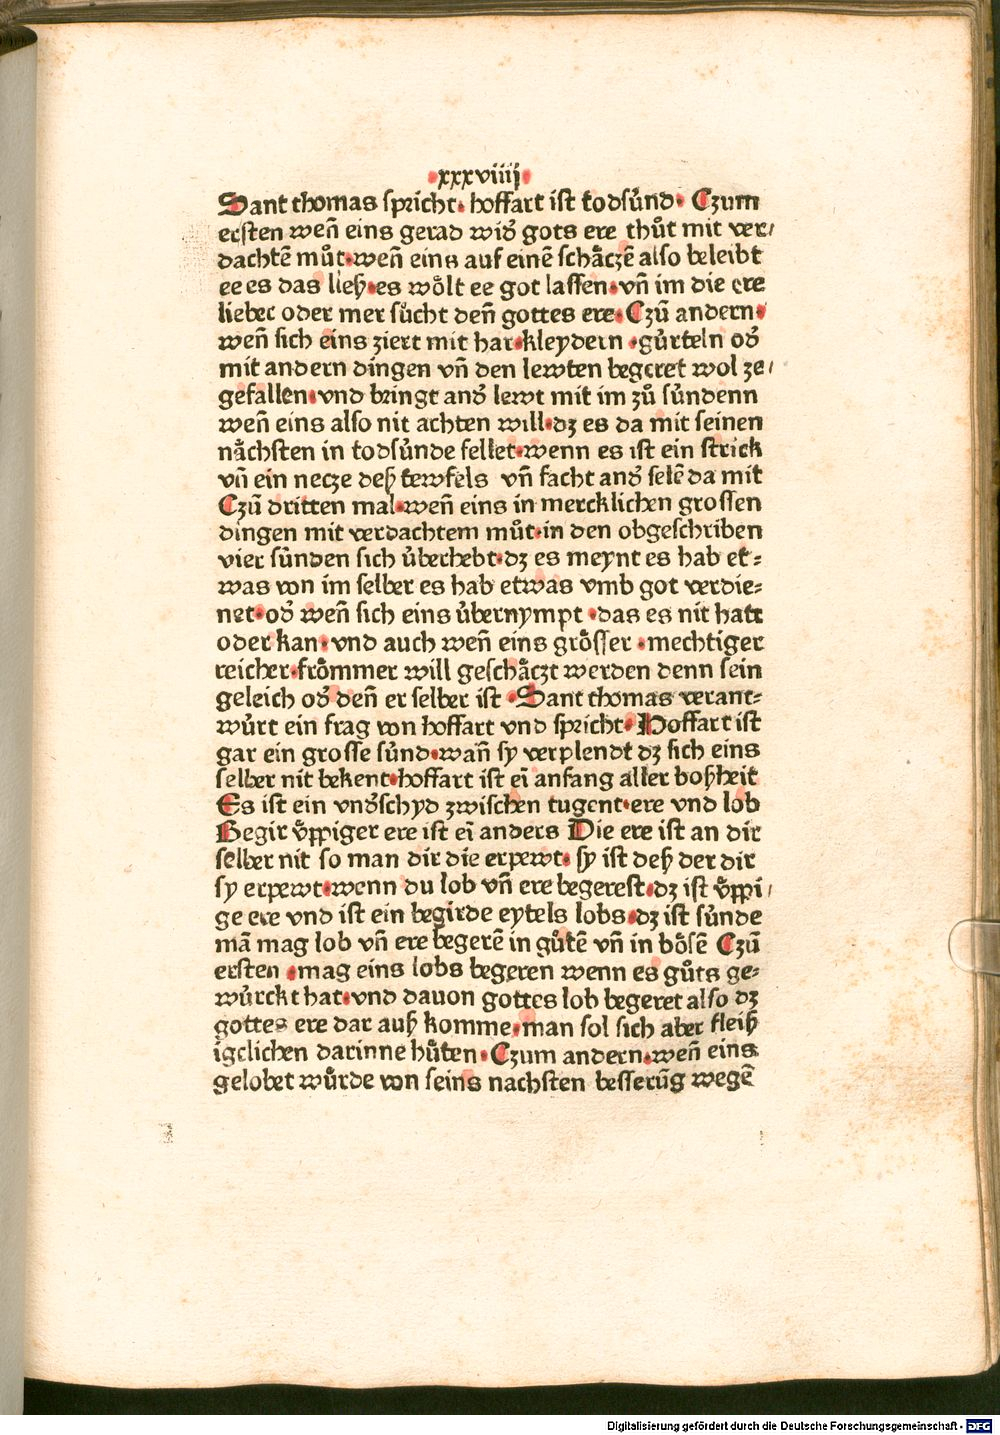 ·xxxviiij·
Sant thomas spricht· hoffart ist todsu̇nd· Czum
ersten weñ eins gerad wid' gots ere thůt mit ver/
dachtē můt·weñ eins auf einē schȧczē also beleibt
ee es das lieſʒ·es wȯlt ee got lassen·vñ im die ere
lieber oder mer su̇cht deñ gottes ere·Czū andern·
weñ sich eins ziert mit har·kleydern ·gu̇rteln od'
mit andern dingen vñ den lewten begeret wol ze/
gefallen·vnd bringt and' lewt mit im zů su̇ndenn
weñ eins also nit achten will·dʒ es da mit seinen
nȧchsten in todsu̇nde fellet·wenn es ist ein strick
vñ ein necze deſʒ tewfels vñ facht and' selē da mit
Czū dritten mal·weñ eins in mercklichen grossen
dingen mit verdachtem můt·in den obgeschriben
vier su̇nden sich u̇berhebt·dʒ es meynt es hab et⸗
was von im selber es hab etwas vmb got verdie⸗
net·od' weñ sich eins u̇bernympt ·das es nit hatt
oder kan·vnd auch weñ eins grȯsser ·mechtiger
reicher·frȯmmer will geschȧczt werden denn sein
geleich od' deñ er selber ist ·Sant thomas verant⸗
wu̇rt ein frag von hoffart vnd spricht·Hoffart ist
gar ein grosse su̇nd·wañ sy verplendt dʒ sich eins
selber nit bekent·hoffart ist eī anfang aller boſʒheit
Es ist ein vnd'schyd zwischen tugent·ere vnd lob
Begir u̇ppiger ere ist eī anders Die ere ist an dir
selber nit so man dir die erpewt· sy ist deſʒ der dir
sy erpewt·wenn du lob vñ ere begerest·dʒ ist u̇ppi/
ge ere vnd ist ein begirde eytels lobs·dʒ ist su̇nde
mā mag lob vñ ere begerē in gůtē vñ in bȯsē Czū
ersten ·mag eins lobs begeren wenn es gůts ge⸗
wu̇rckt hat·vnd dauon gottes lob begeret also dʒ
gottes ere dar auſʒ komme·man sol sich aber fleiſʒ
igclichen darinne hu̇ten·Czum andern·weñ eins
gelobet wu̇rde von seins nachsten besserūg wegē
Digitalisierung gefördert durch die Deutsche Forschungsgemeinschaft - DFG